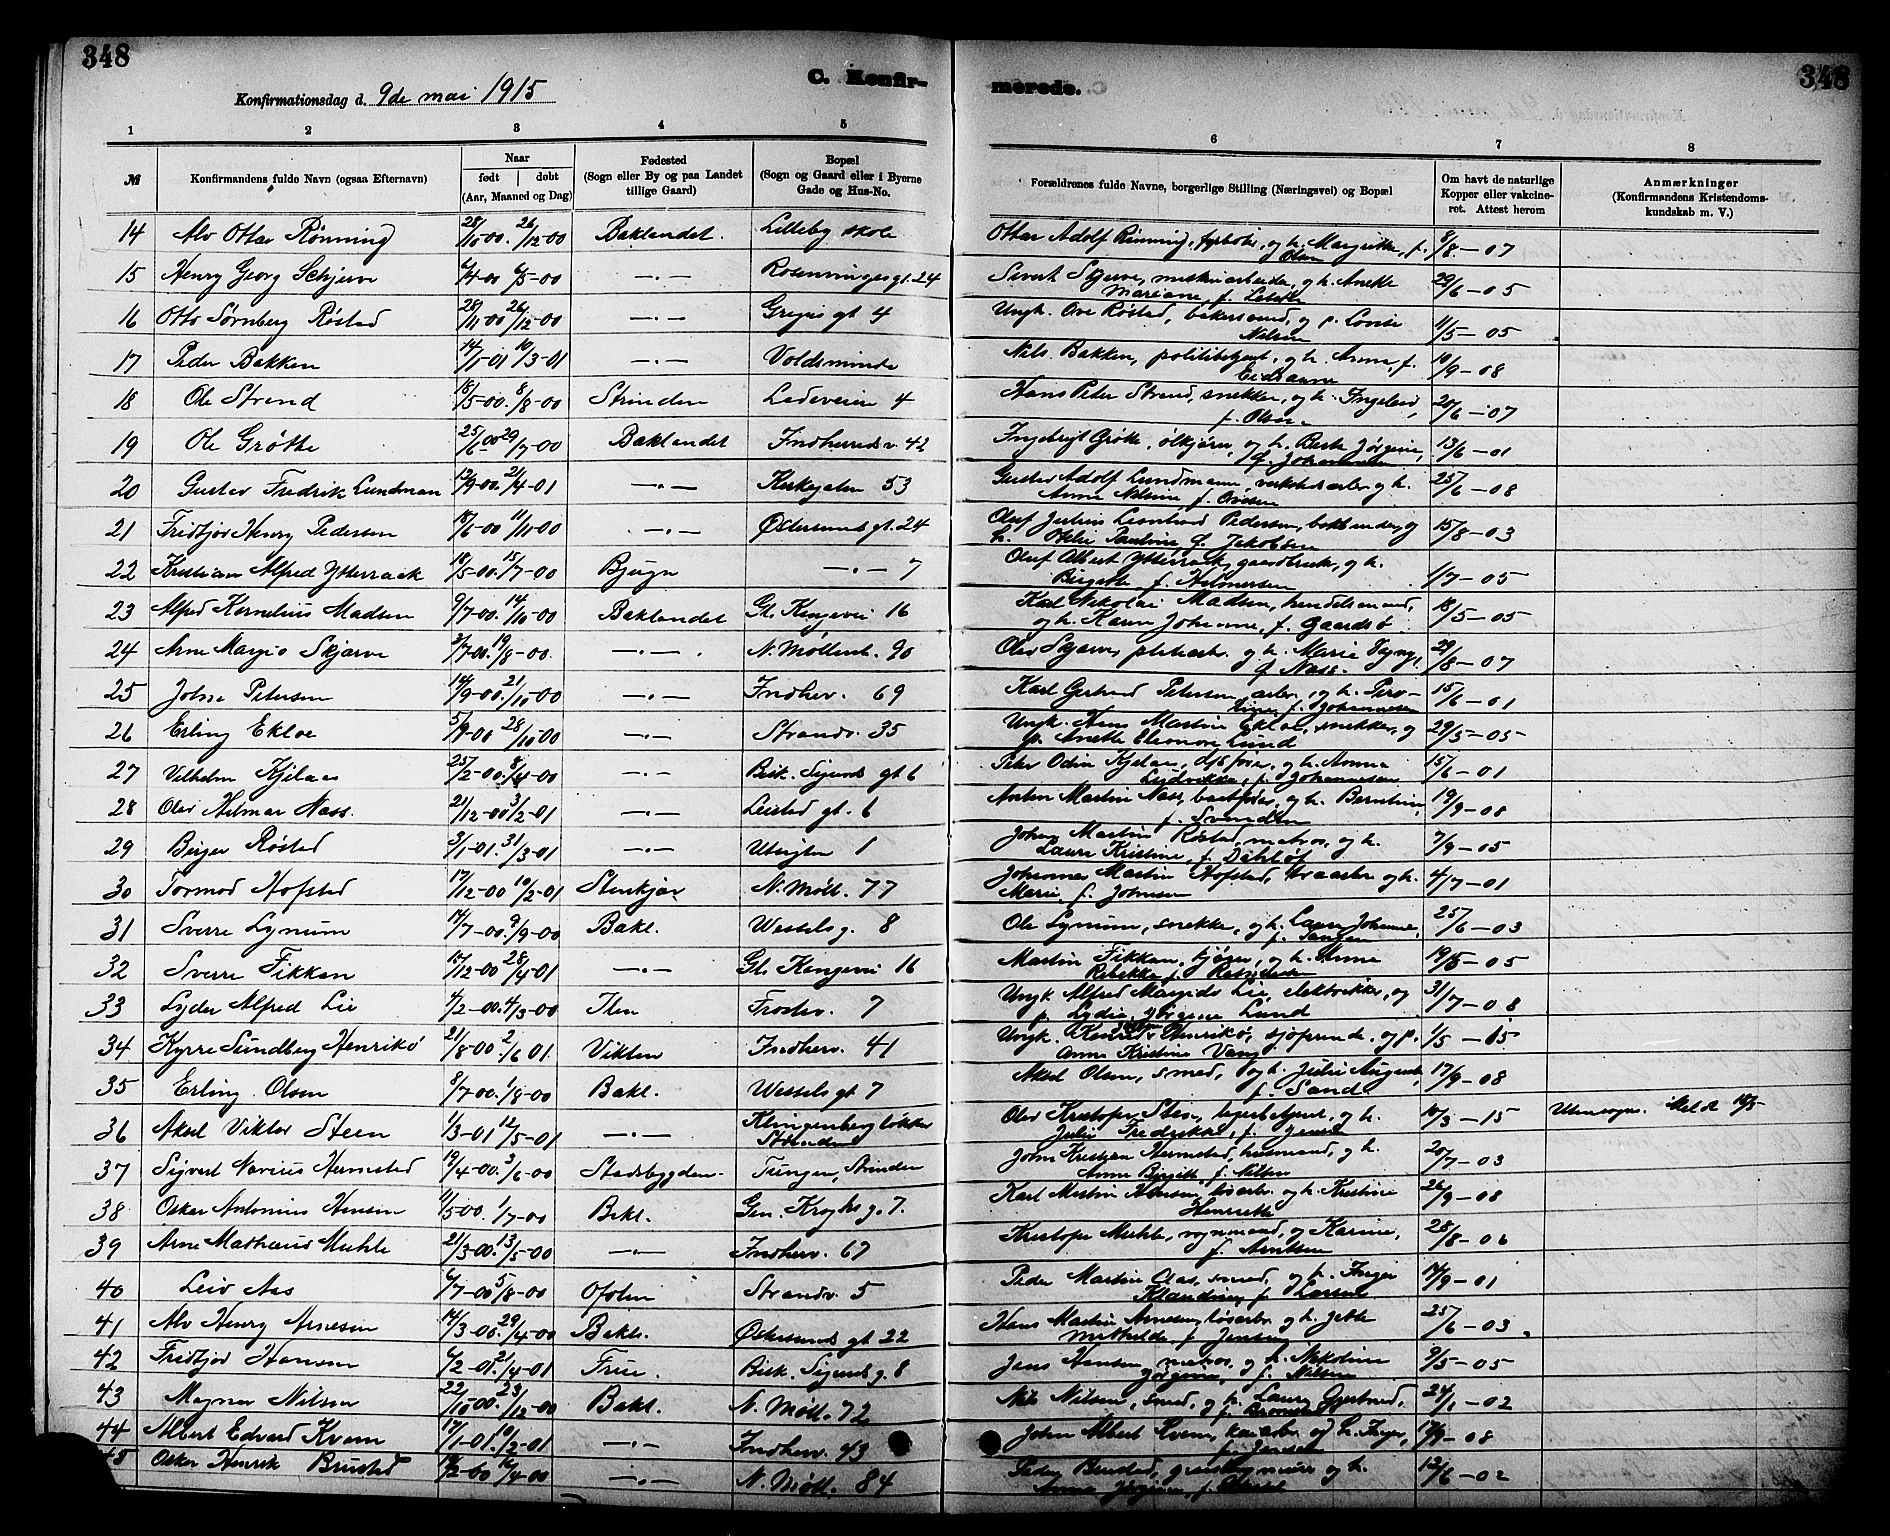 348
C. Konfir-
merede.
348
Konfirmationsdag d. 9de mai 1915
1 2 3 4 5 6 7 8
№
Konfirmandens fulde Navn (ogsaa Efternavn)
Naar
født | døbt
(Aar, Maaned og Dag)
Fødested
(Sogn eller By og paa Landet
tillige Gaard)
Bopæl
(Sogn og Gaard eller i Byerne
Gade og Hus-No.
Forældrenes fulde Navne, borgerlige Stilling (Næringsvei) og Bopæl
Om havt de naturlige
Kopper eller vakcine-
ret. Attest herom
Anmærkninger
(Konfirmandens Kristendoms-
kundskab m. V.)
14 Alv Ottar Rønning 28/10-00. 26/12-00 Baklandet. Lilleby skole Ottar Adolf Rønning, fyrbøter, og h. Margrethe, f. Olsen 8/8-07
15 Henry Georg Schjerve 6/4-00 6/5-00 —„— Rosenvinges gt. 24 Sivert Skjerve, maskinarbeider, og h. Anette Mariane f. 29/6-05
16 Otto Sørnberg Røstad 28/11-00 26/12-00 —„— Gregus gt 4 Ungk. Ove Røstad, bakersvend, og p. Lovise Nilsen 11/5-05
17 Peder Bakken 14/1-01 10/3-01 —„— Voldsminde Nils Bakken, politibetjent, og h. Anna, f. Eidsaune 10/9-08
18 Ole Strand 18/5-00. 8/8-00 Strinden Ladeveien 4 Hans Peter Strand, snekker, og h. Ingeborg, f. Olsen 20/6-07
19 Ole Grøtte 25/6-00 29/7-00 Baklandet Indherredsv. 42 Ingebrigt Grøtte, ølkjører, og h. Berte Jørgine, f. Johannesen 13/6-01
20 Gustav Fredrik Lundman 12/9-00. 21/4-01 —„— Kirkegaten 53 Gustav Adolf Lundmann, verkstedsarb. og h. Anna f. 25/6-08
21 Fridtjov Henry Pedersen 18/6-00 11/11-00 —„— Østersunds gt. 24 Oluf Julius Leonhard Pedersen, bokbinder, og h. Pauline f. Jakobsen 15/8-03
22 Kristian Alfred Ytterraak 18/5-00. 15/7-00 Bjugn —„— 7 Oluf Albert Ytterraak, gaardbruk., og h. Birgitte f. Helmersen 1/7-05
23 Alfred Kornelius Madsen 9/7-00. 14/10-00 Baklandet Gl. Kongevei 16 Karl Nikolai Madsen, handelsmand, og h. Karen Johanne, f. Gaardsø 18/5-05
24 Arne Margido Skjærve 3/7-00. 19/8-00. —„— N. Møllenb. 90 Olav Skjærve, platearb. og h. Marie f. Næss. 29/8-07
25 Johne Petersen 14/9-00. 21/10-00 —„— Indherv. 69 Karl Gerhard Petersen, arb., og h. Petro- line, f. Johannesen 15/6-01
26 Erling Ekloe 5/9-00 28/10-00 —„— Strandv. 35 Ungk. Hans Martin Ekloe, snekker, og p. Anette Eleonore Lund 29/5-05
27 Vilhelm Kjelaas 25/2-00. 8/4-00 —„— Bisk. Sigurds gt 6 Peter Odin Kjelaas, og h. Anna Ludvikka, f. Johannesen 15/6-01
28 Olav Hilmar Næss. 21/12-00 3/2-01 —„— Leistad gt. 6 Anton Martin Næss, baatfører, og h. Berntine, f. Svendsen 19/9-08
29 Birger Røstad 3/1-01. 31/3-01 —„— Utsigten 1 Johan Martin Røstad, matros, og h. Laura Kristine, f. Dahløf 7/9-05
30 Tormod Hofstad 17/12-00 10/2-01 Stenkjær N. Møll. 77 Johannes Martin Hofstad, og h. Marie, f. Johnsen 4/7-01
31 Sverre Lynum 14/7-00. 9/9-00 Bakl. Wessels g. 8 Ole Lynum, snekker, og h. Laura Johanne, f. 25/6-03
32 Sverre Fikkan 15/12-00 28/4-01 —„— Gl. Kongevei 16 Martin Fikkan, kjører, og h. Anna Rebekka f. 19/5-05
33 Lyder Alfred Lie 4/2-00. 4/3-00 Ilen Frostav. 7 Ungk. Alfred Margido Lie, elektriker, og p. Lydia Jørgine Lund 31/7-08
34 Kyrre Sundberg Henrikø 21/8-00 2/6 01. Vikten Indherv. 41 Ungk. Konrad Henrikø, sjøfarende, og p. Anna Kristine Vang 1/5-15
35 Erling Olsen 8/7-00. 1/8-00 Bakl. Wessels gt. 7 Aksel Olsen, smed, og h. Julie Auguste, f. Sand 17/9-08
36 Aksel Viktor Steen 1/3-01 12/5-01 —„— Klingenberg løkken Olav Kristofer Steen, og h. Julie Fredrikke, f. 10/3-15 Utensogns.
37 Sigvert Navius Hermstad 19/4-00. 3/6-00 Stadsbygden Tungen, Strinden John Kristian Hermstad, husmand, og h. Anna Birgitte f. Nilsen 20/7-03
38 Oskar Antonius Hansen 11/5-00. 1/7-00 Bakl. Gen. Kroghs g. 7. Karl Martin Hansen, løsarb. og h. Kristine Henriette 26/9-08
39 Arne Mathæus Muhle 21/3-00. 13/5-00 —„— Indherv. 67 Kristofer Muhle, vognmand, og Karine, f. Arntsen 28/8-06
40 Leiv Aas 6/7-00 5/8-00 Ofoten Strandv. 5 Peder Martin Aas, smed, og h. Inger Klaudine, f. Larsen 14/9-01
41 Alv Henry Arnesen 14/3-00. 29/4-00 Bakl. Østersunds gt 22 Hans Martin Arnesen, løsarb. og h. Jette Mathilde, f. Jensen 25/6-03.
42 Fridtjov Hansen 6/2-01. 21/4-01 Frue. Bisk. Sigurds g. 8 Jens Hansen, matros, og h. Nikoline Jørgine, f. Nilsen 9/5-05
43 Magnar Nilsen 22/10-00. 23/12-00 Bakl. N. Møll. 72 Nils Nilsen, smed, og h. Laura Gjertrud, f. 24/1-02
44 Albert Edvard Kvam 17/1-01. 10/2-01 —„— Indherv. 43 John Albert Kvam, og h. Inger, f. Jensen 17/9-08
45 Oskar Henrik Brustad 19/2-00 16/4-00 —„— N. Møll. 84 Peder Brustad, og h. Anna Jørgine, f. 12/6-02